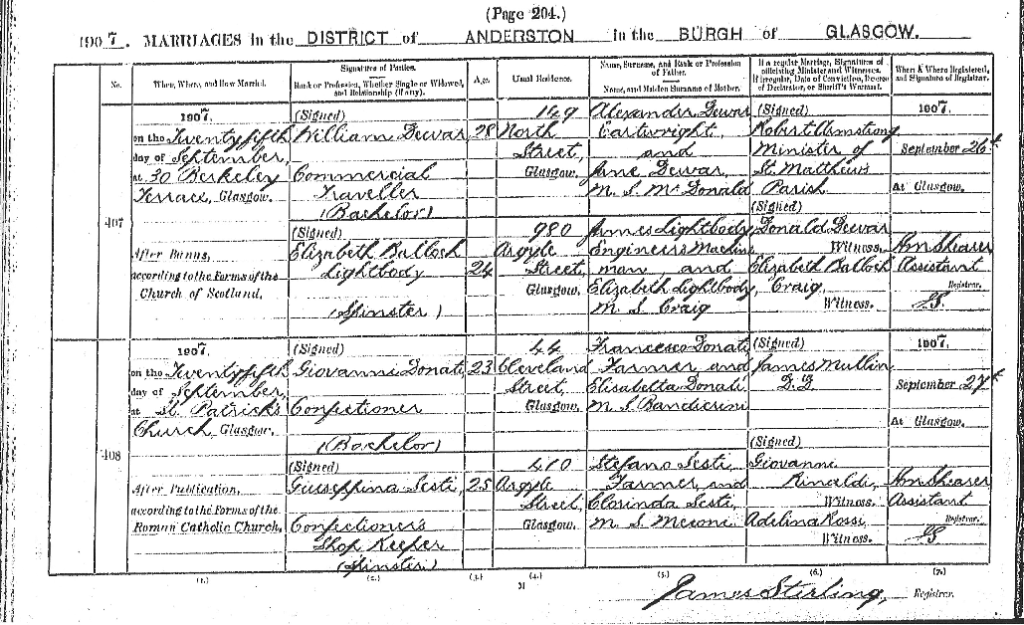 (Page 204.)
1907. MARRIAGES in the DISTRICT of ANDERSTON in the BURGH of GLASGOW.
No.
When, Where, and How Married.
Signatures of Parties.
Rank or Profession, Whether Single or Widowed, and Relationship (if any).
Age.
Usual Residence.
Name, Surname, and Rank or Profession of Father.
Name, and Maiden Surname of Mother.
If a regular Marriage, Signatures of officiating Minister and Witnesses.
If irregular, Date of Conviction, Decree of Declarator, or Sheriff's Warrant.
When & Where Registered, and Signature of Registrar.
407
1907.
on the Twentyfifth
day of September,
at 30 Berkeley
Terrace, Glasgow.
After Banns,
according to the Forms of the
Church of Scotland.
(Signed)
William Dewar
Commercial
Traveller
(Bachelor)
28
149
North
Street,
Glasgow.
Alexander Dewar
Cartwright,
and
Jane Dewar
m. S. McDonald
(Signed)
Robert Armstrong
Minister of
St. Matthew's
Parish.
(Signed)
Donald Dewar
Witness.
Elizabeth Balloch
Craig,
Witness.
1907.
September 26th
At Glasgow.
Wm Shearer
Assistant
Registrar.
JS.
(Signed)
Elizabeth Balloch
Lightbody
(Spinster)
24
980
Argyle
Street,
Glasgow.
James Lightbody,
Engineer's Machine
man, and
Elizabeth Lightbody,
m. S. Craig
408
1907.
on the Twentyfifth
day of September,
at St. Patrick's
Church, Glasgow.
After Publication,
according to the Forms of the
Roman Catholic Church.
(Signed)
Giovanni Donati,
Confectioner
(Bachelor)
23
44
Cleveland
Street,
Glasgow.
Francesco Donati,
Farmer and
Elisabetta Donati
m. S. Bandierini
(Signed)
James Mullin
(Signed)
Giovanni
Rinaldi,
Witness.
Adelina Rossi,
Witness.
1907.
September 27th
At Glasgow.
Wm Shearer
Assistant
Registrar.
JS
(Signed)
Giuseppina Sesti,
Confectioner's
Shop Keeper
(Spinster)
25
410
Argyle
Street,
Glasgow.
Stefano Sesti
Farmer, and
Clorinda Sesti,
m. S. Meconi
(1.)
(2.)
(3.)
(4.)
(5.)
(6.)
(7.)
M
James Stirling, Registrar.